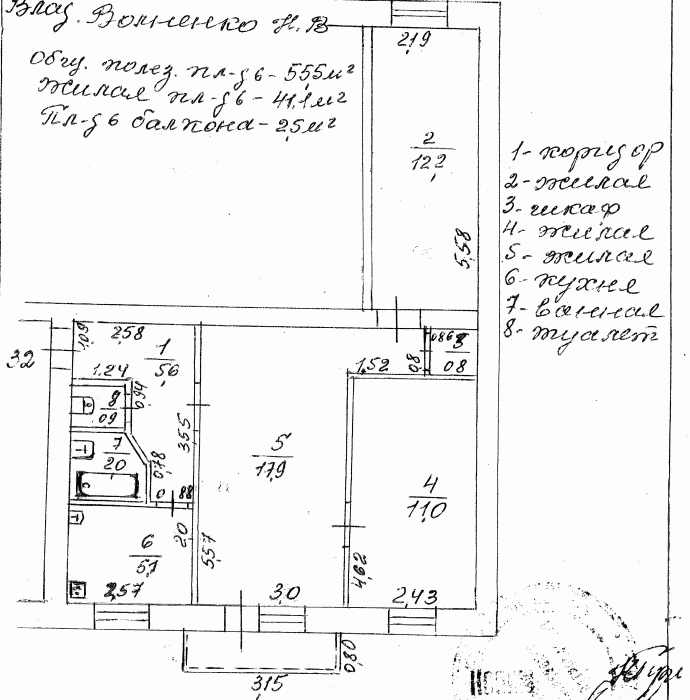 Влад. Волненко Н. В
Общ. полез. пл-дь - 55,5 м²
Жилая пл-дь - 41,1 м²
Пл-дь балкона - 2,5 м²
2,19
2
12,2
5,58
1 - коридор
2 - жилая
3 - шкаф
4 - жилая
5 - жилая
6 - кухня
7 - ванная
8 - туалет
32
1,09
2,58
1
5,6
1,24
0,94
8
0,9
3,55
7
2,0
0,78
0,88
2,0
6
5,1
2,57
5
17,9
5,57
3,0
1,52
0,8
0,86
3
0,8
4
11,0
4,62
2,43
3,15
0,80